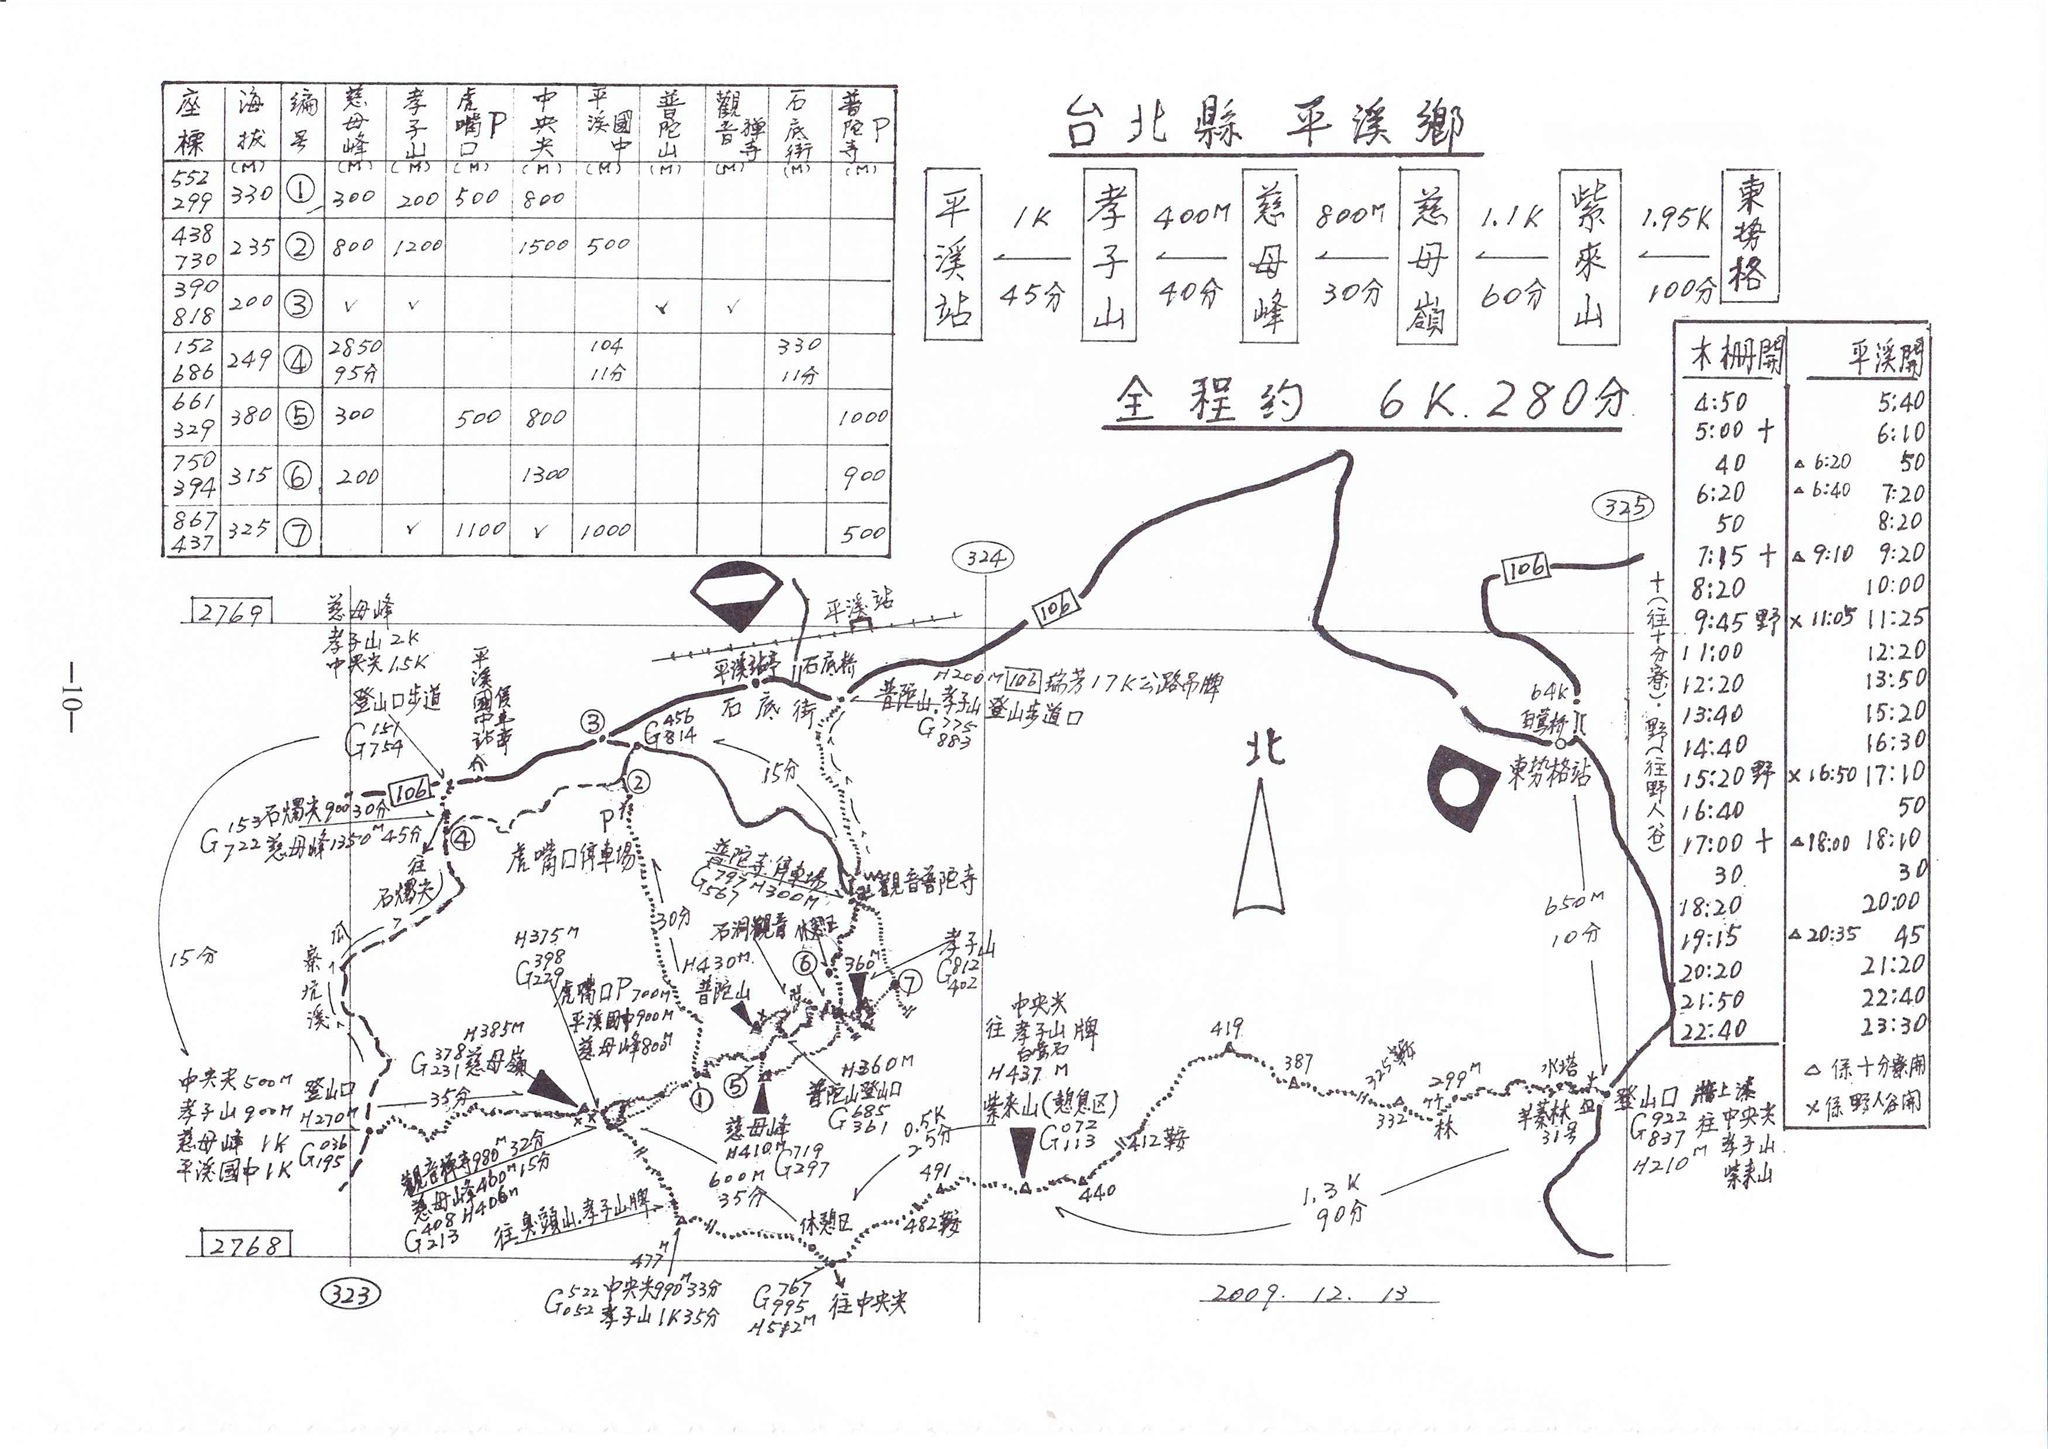 台北縣 平溪鄉
平溪站 1K 45分 孝子山 400M 40分 慈母峰 800M 30分 慈母嶺 1.1K 60分 紫來山 1.95K 100分 東勢格
全程約 6K.280分
座標 海拔(M) 編号 慈母峰(M) 孝子山(M) 虎嘴口P(M) 中央尖(M) 平溪國中(M) 普陀山(M) 觀音禪寺(M) 石底街(M) 普陀寺P(M)
552 299 330 ① 300 200 500 800
438 730 235 ② 800 1200 1500 500
390 818 200 ③ ✓ ✓ ✓ ✓
152 686 249 ④ 2850 95分 104 11分 330 11分
661 329 380 ⑤ 300 500 800 1000
750 394 315 ⑥ 200 1300 900
867 437 325 ⑦ ✓ 1100 ✓ 1000 500
木柵開 平溪開
4:50 5:40
5:00 十 6:10
40 △6:20 50
6:20 △6:40 7:20
50 8:20
7:15 十 △9:10 9:20
8:20 10:00
9:45 野 ×11:05 11:25
11:00 12:20
12:20 13:50
13:40 15:20
14:40 16:30
15:20 野 ×16:50 17:10
16:40 50
17:00 十 △18:00 18:10
30 30
18:20 20:00
19:15 △20:35 45
20:20 21:20
21:50 22:40
22:40 23:30
△係十分寮開
×係野人谷開
十(往十分寮)·野(往野人谷)
2769
324
325
106
106
慈母峰
孝子山 2K
中央尖 1.5K
登山口步道
G151
754
平溪國中
平溪站
平溪站亭
石底橋
石底街
H200M 106 瑞芳17K公路吊牌
普陀山.孝子山 登山步道口
G775
883
64K
白鶯橋
東勢格站
北
③
G456
814
②
P
虎嘴口停車場
15分
106
G153 石燭尖900 30分
722 慈母峰1350M 45分
④
往石燭尖
瓜寮坑溪
15分
30分
普陀寺停車場
G797 H300M
567
觀音普陀寺
石洞觀音
休憩區
H430M
普陀山
⑥
360M
孝子山
G812
402
⑦
650M
10分
H375M
G398
229
虎嘴口P 700M
平溪國中900M
慈母峰800M
H385M
G378 慈母嶺
231
35分
中央尖500M
孝子山900M
慈母峰 1K
平溪國中1K
登山口
H270M
G036
195
①
⑤
慈母峰
H410M G719
297
600M
35分
H360M
普陀山登山口
G685
361
0.5K
25分
中央尖
往孝子山牌
H437M
紫來山(憩息区)
G072
113
419
387
325鞍
332
299M
竹林
水塔
羊蓁林
31号
登山口 牆上漆
G922 往中央尖
837 孝子山
H210M 紫來山
412鞍
440
491
482鞍
1.3K
90分
觀音禪寺980M 32分
慈母峰460M 15分
G408 H406M
213
往臭頭山.孝子山牌
休憩区
477M
G522 中央尖990M 33分
052 孝子山1K35分
G767
995
往中央尖
2768
323
2009. 12. 13
—10—